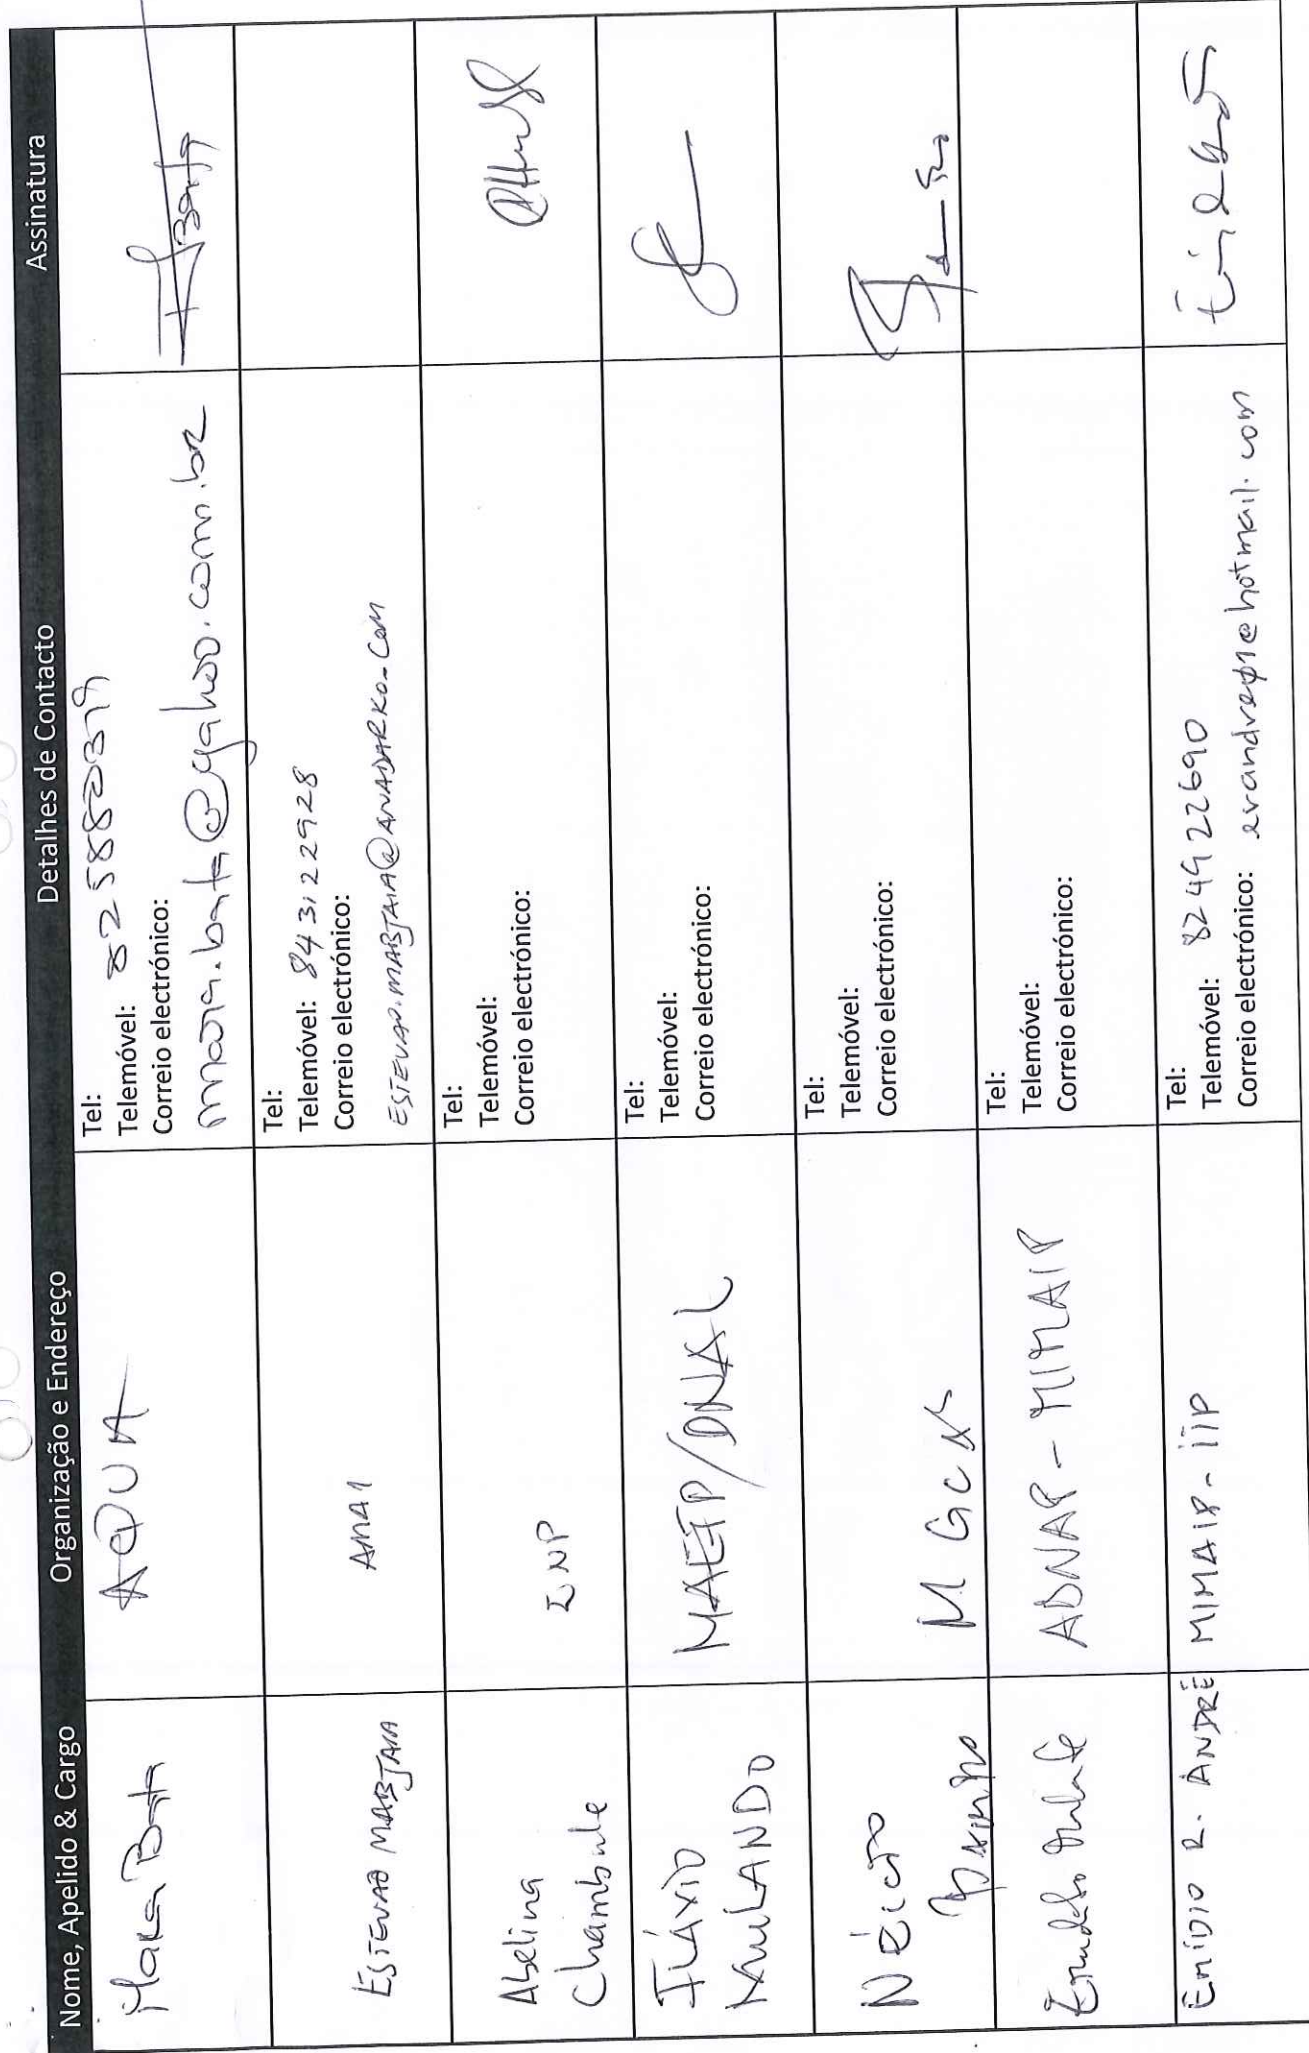 Nome, Apelido & Cargo Organização e Endereço Detalhes de Contacto Assinatura
Mara Bata
AQUA
Tel:
Telemóvel: 825882379
Correio electrónico:
mara.bata@yahoo.com.br
ESTEVAO MABJAIA
AMA1
Tel:
Telemóvel: 843122928
Correio electrónico:
ESTEVAO.MABJAIA@ANADARKO.COM
Abelina
Chambule
INP
Tel:
Telemóvel:
Correio electrónico:
FLÁVIO
MAEFP/DNAL
Tel:
Telemóvel:
Correio electrónico:
Tel:
Telemóvel:
Correio electrónico:
ADNAP - MIMAIP
Tel:
Telemóvel:
Correio electrónico:
EMÍDIO R. ANDRÉ
MIMAIP - IIP
Tel:
Telemóvel: 824922690
Correio electrónico: erandre01@hotmail.com